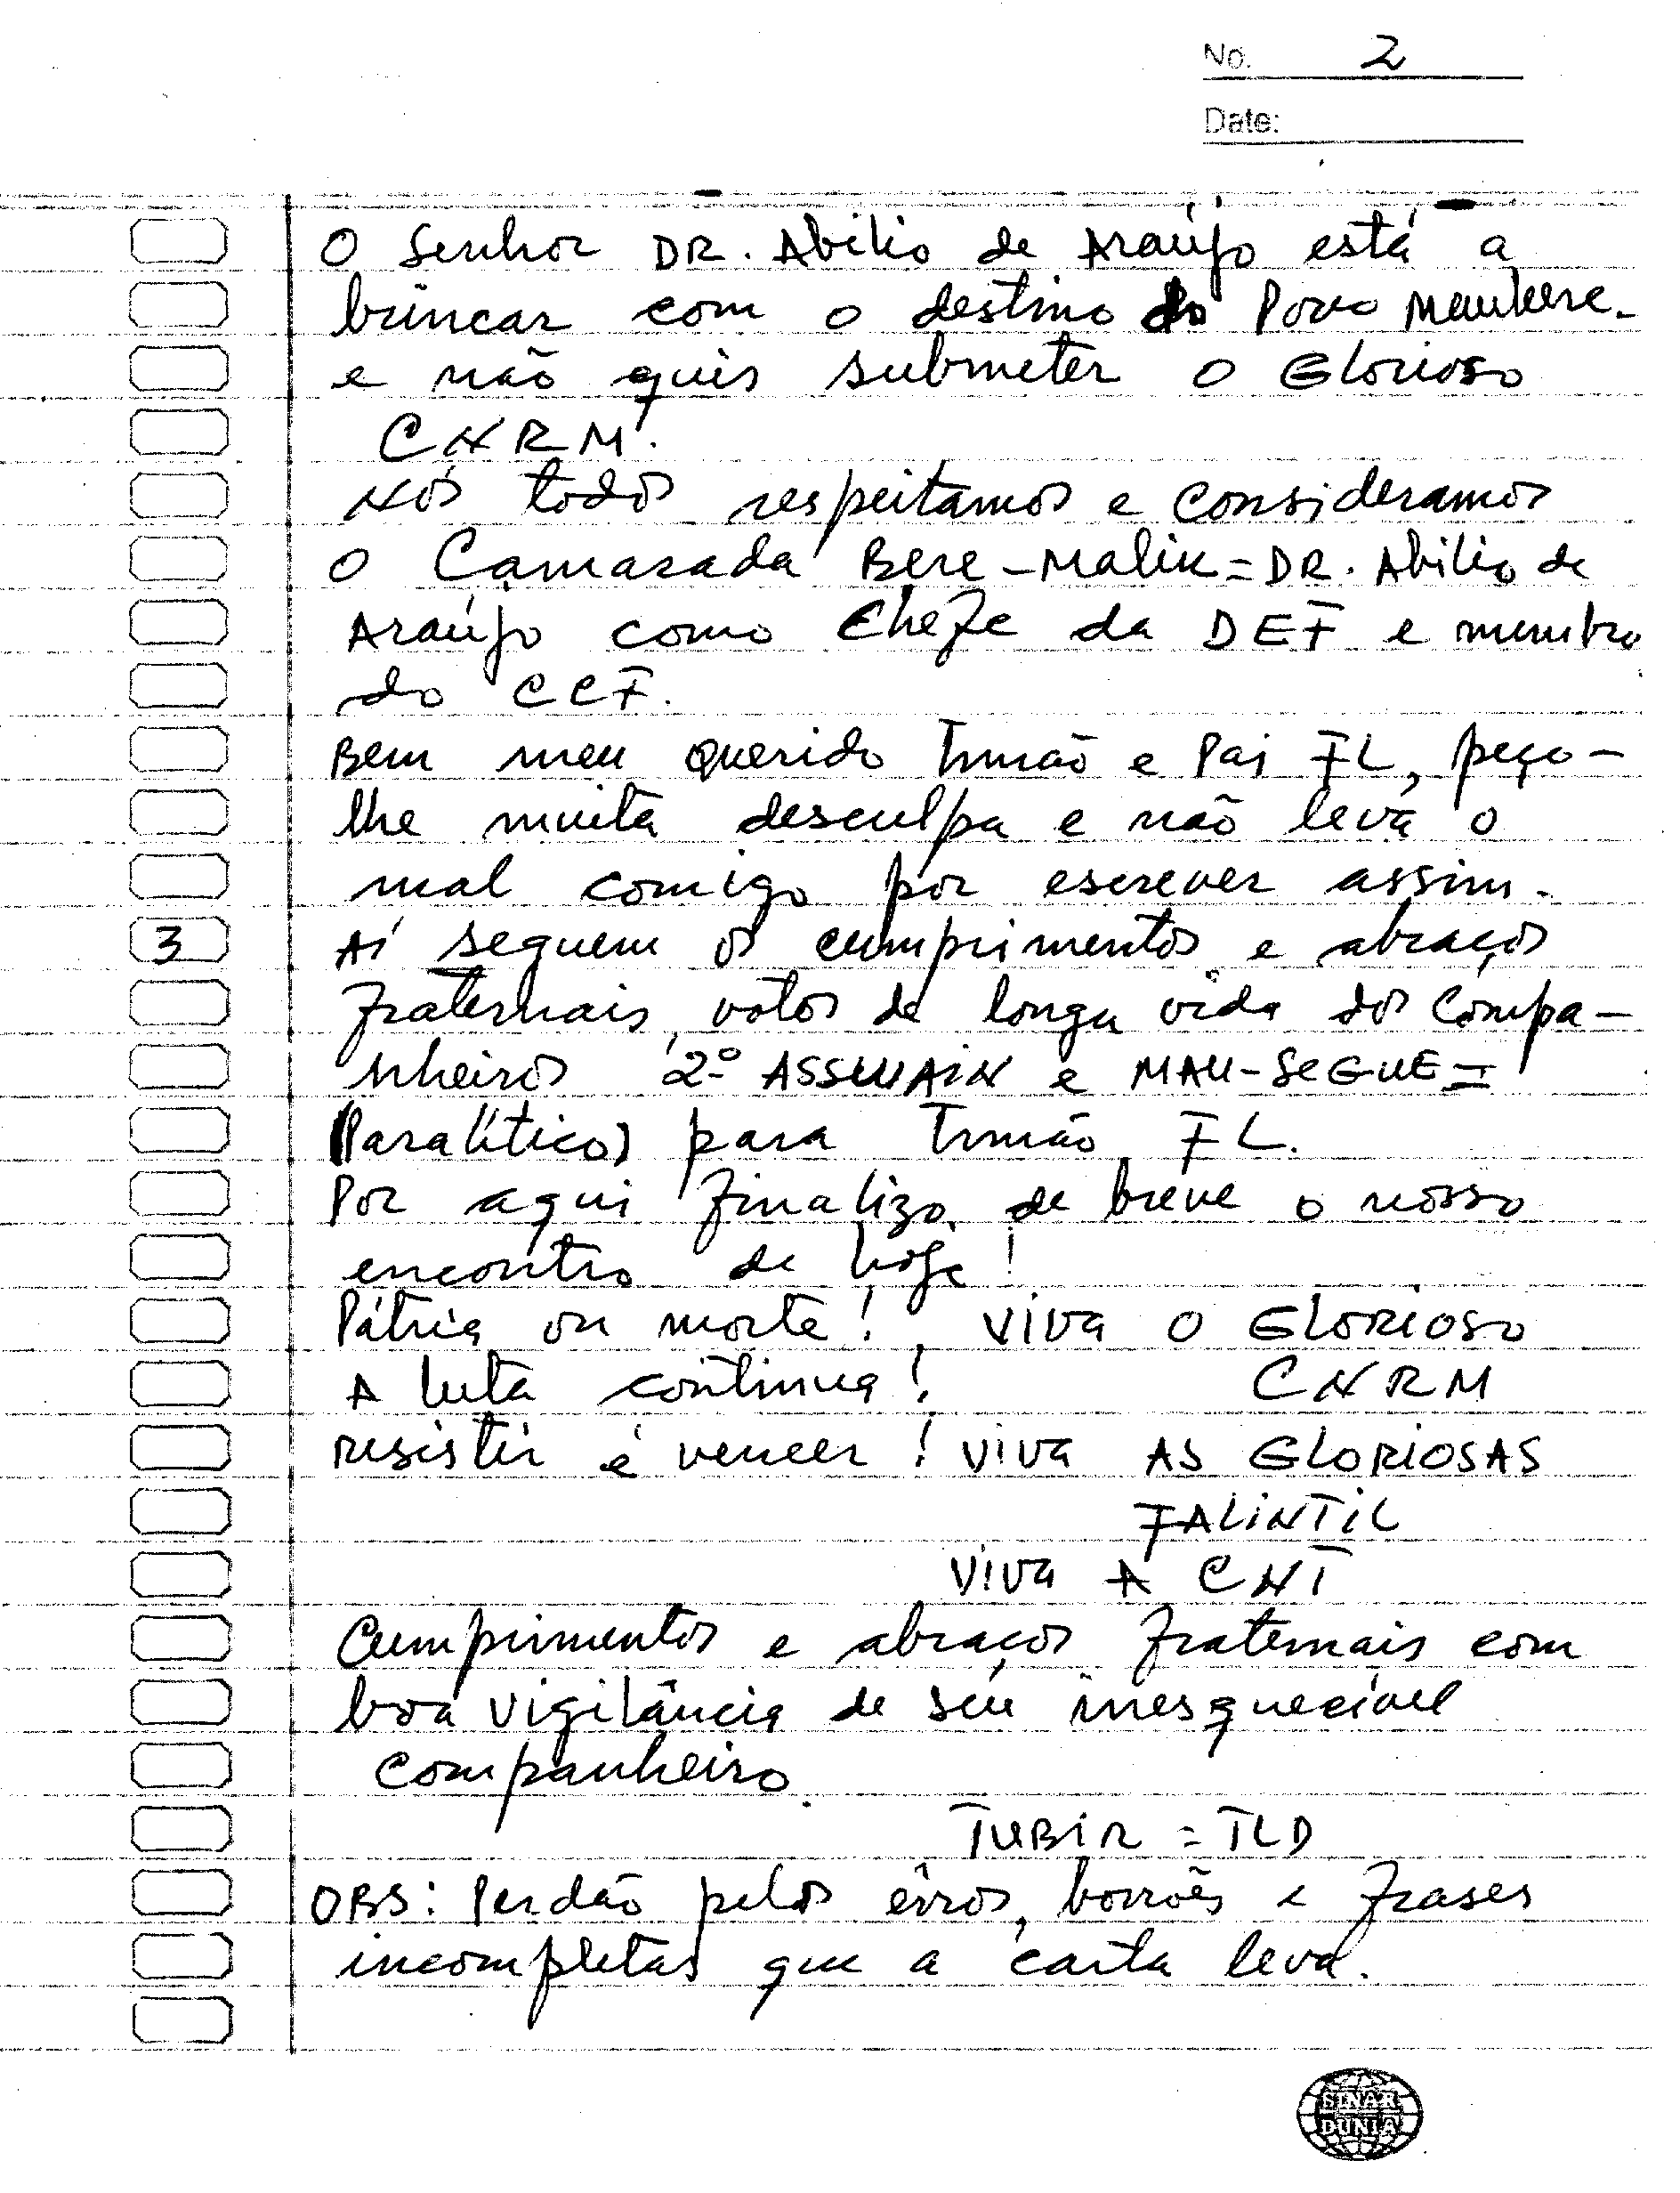 No. 2
Date:
O Senhor DR. Abilio de Araújo está a
brincar com o destino do Povo Maubere.
e não quis submeter o Glorioso
CNRM.
Nós todos respeitamos e consideramos
o Camarada Bere-Malik=DR. Abilio de
Araújo como Chefe da DEF e membro
do CCF.
Bem meu querido Irmão e Pai FL, peço-
lhe muita desculpa e não leva o
mal comigo por escrever assim.
3 Aí seguem os cumprimentos e abraços
fraternais, votos de longa vida dos Compa-
nheiros 2º ASSWAIN e MAU-SEGUE=
(Paralítico) para Irmão FL.
Por aqui finalizo, de breve o nosso
encontro de hoje!
Pátria ou morte! Viva o GLORIOSO
A luta continua! CNRM
resistir é vencer! Viva AS GLORIOSAS
FALINTIL
Viva A CNT
Cumprimentos e abraços fraternais com
boa vigilância de seu inesquecível
companheiro.
TUBIR = TLD
OBS: Perdão pelos êrros, borrões e frases
incompletas que a carta leva.
SINAR
DUNIA